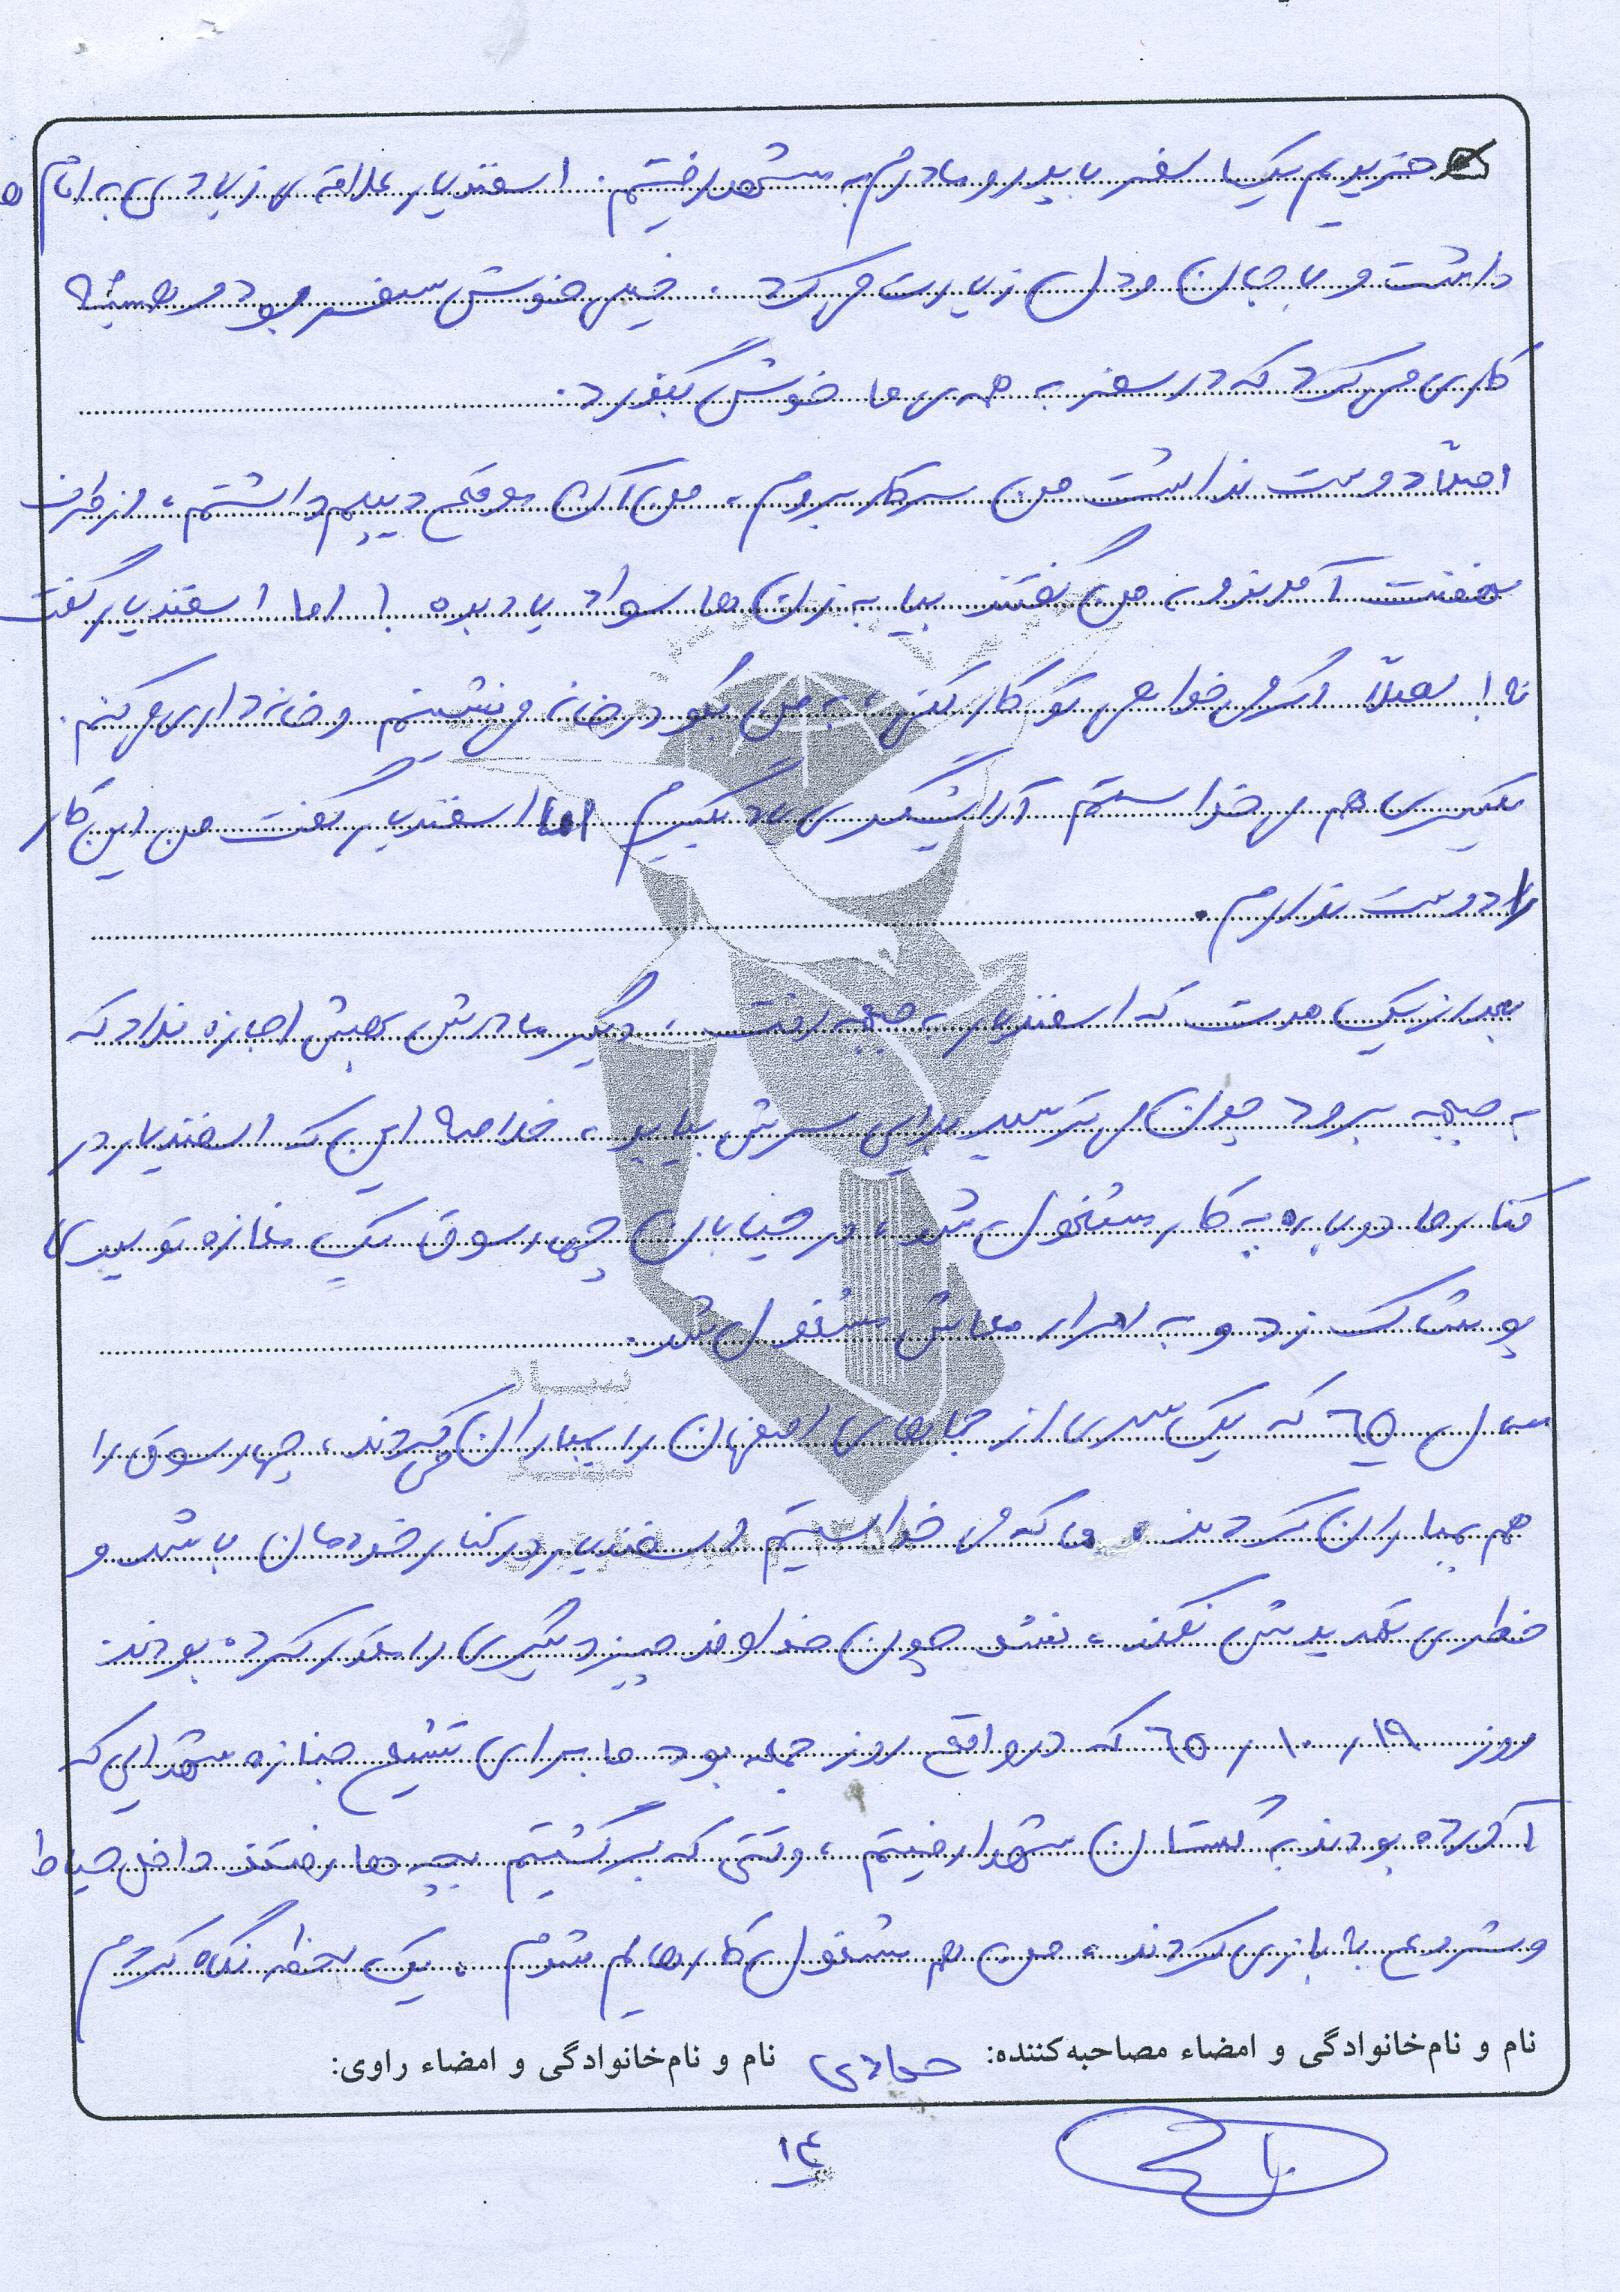 خریدیم یکبار سفر با پدر و مادرم به مشهد رفتیم. اسفندیار علاقه‌ی زیادی به امام
داشت و با جان و دل زیارت می‌کرد. خیلی خوش سفر بود و همیشه
کاری می‌کرد که در سفر به همه‌ی ما خوش بگذرد.
اصلاً دوست نداشت من سر کار بروم، من آن موقع دیپلم داشتم، از طرف
نهضت آمدند و به من گفتند بیا به زنان ما سواد یاد بده! اما اسفندیار گفت
نه! اصلاً اگر می‌خواهی تو کار کنی، به من بگو در خانه می‌نشینم و خانه‌داری می‌کنم.
یکسری هم می‌خواستم آرایشگری یاد بگیرم اما اسفندیار گفت من این کار
را دوست ندارم.
بعد از یک مدت که اسفندیار به جبهه رفت، دیگر مادرش بهش اجازه نداد که
به جبهه برود چون می‌ترسید بلایی سرش بیاید، خلاصه این که اسفندیار در
کنار ما دوباره به کار مشغول شد، در خیابان چهارسوق یک مغازه تولیدی
پوشاک زد و به امرار معاش مشغول شد.
سال ٦٥ که یک سری از جاهای اصفهان را بمباران می‌کردند، چهارسوق را
هم بمباران کردند و ما که می‌خواستیم اسفندیار در کنار خودمان باشد و
خطری تهدیدش نکند، نشد چون خداوند چیز دیگری را مقدر کرده بودند.
روز ١٩ / ١٠ / ٦٥ که در واقع روز جمعه بود ما برای تشییع جنازه شهدایی که
آورده بودند به گلستان شهدا رفتیم، وقتی که برگشتیم بچه‌ها رفتند داخل حیاط
و شروع با بازی کردند، من هم مشغول کارهایم شدم. یک لحظه نگاه کردم
نام و نام‌خانوادگی و امضاء مصاحبه‌کننده: نام و نام‌خانوادگی و امضاء راوی:
١٤